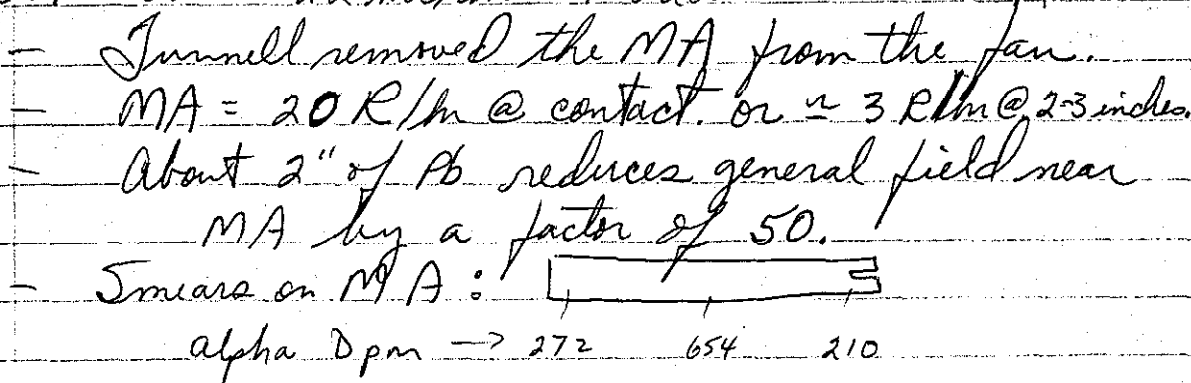 - Tunnell removed the MA from the fan.
- MA = 20 R/hr @ contact. or ≃ 3 R/hr @ 2-3 inches.
- About 2" of Pb reduces general field near
MA by a factor of 50.
- Smears on MA :
alpha Dpm -> 272 654 210